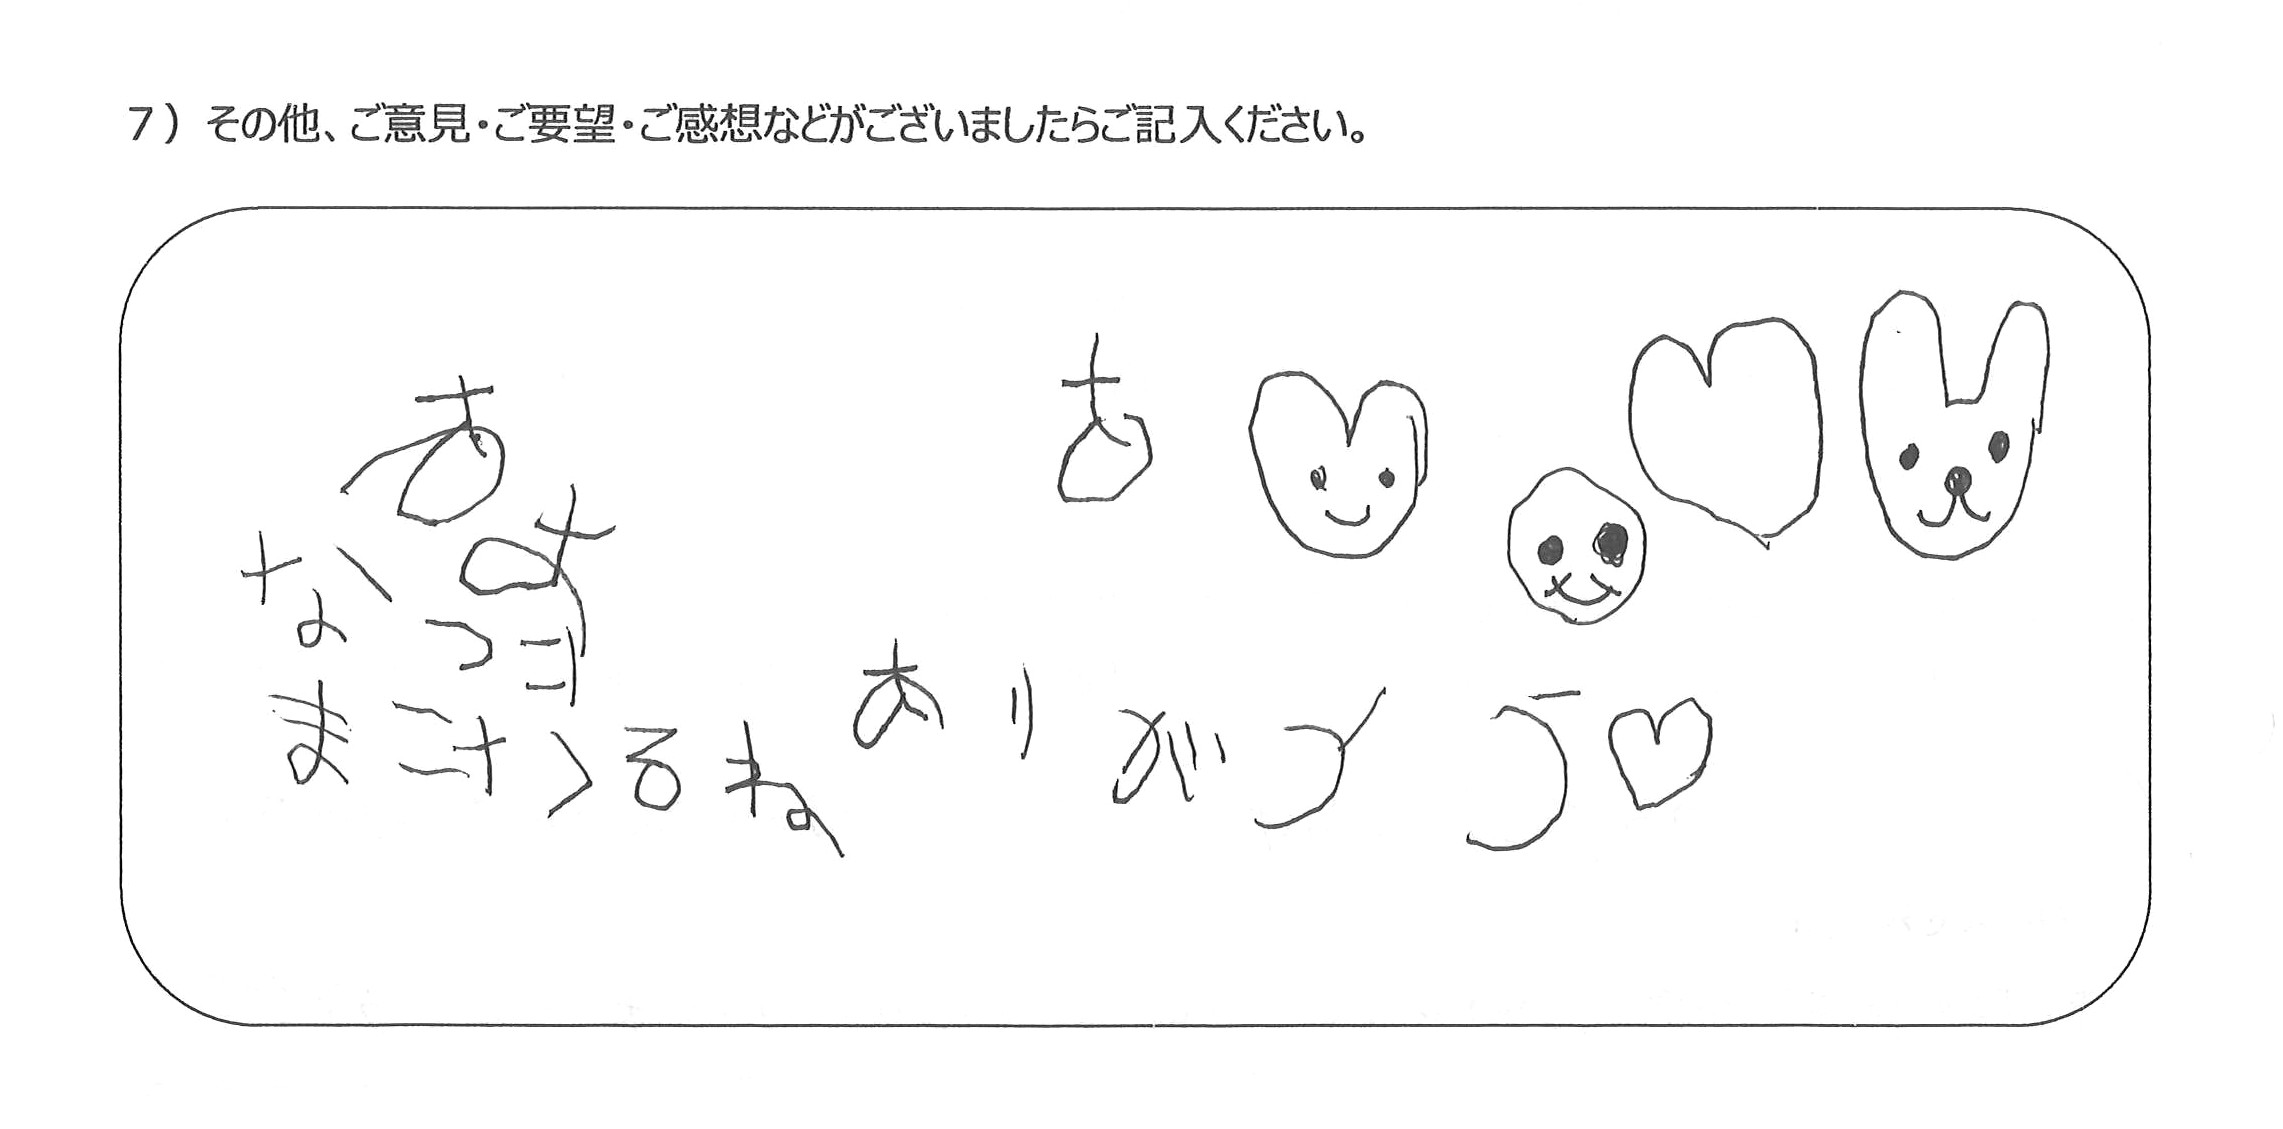 7）その他、ご意見・ご要望・ご感想などがございましたらご記入ください。
あ
あ
あ
なつ
またくるね
ありがとう♡